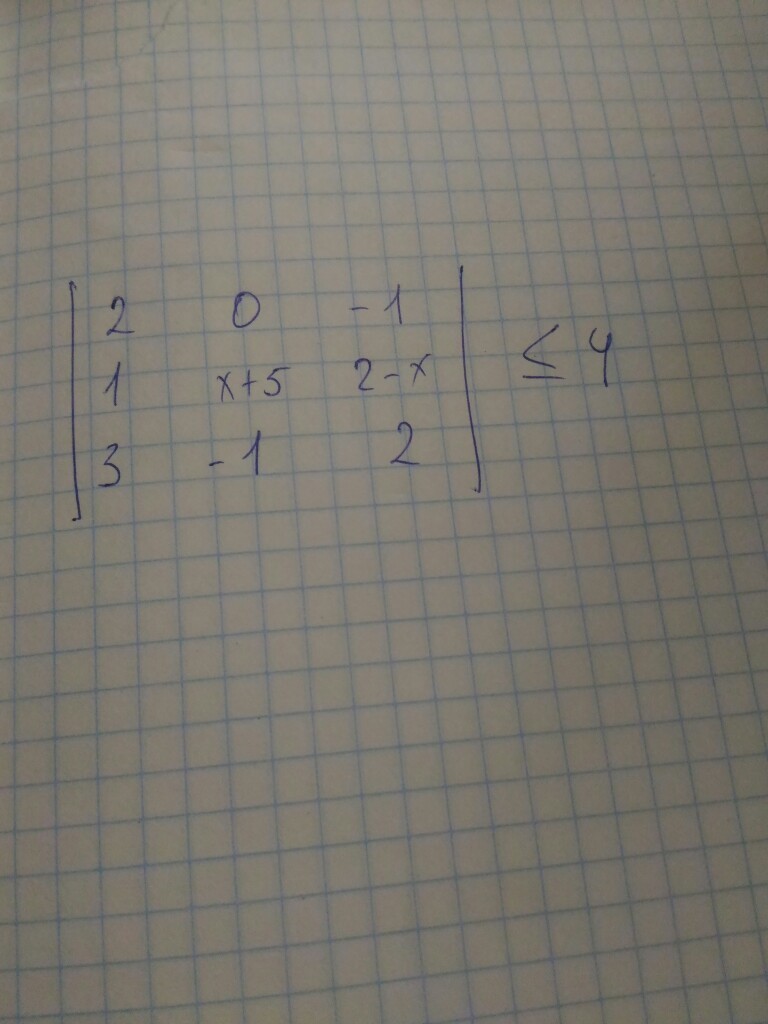 2 0 -1
1 x+5 2-x ≤ 4
3 -1 2